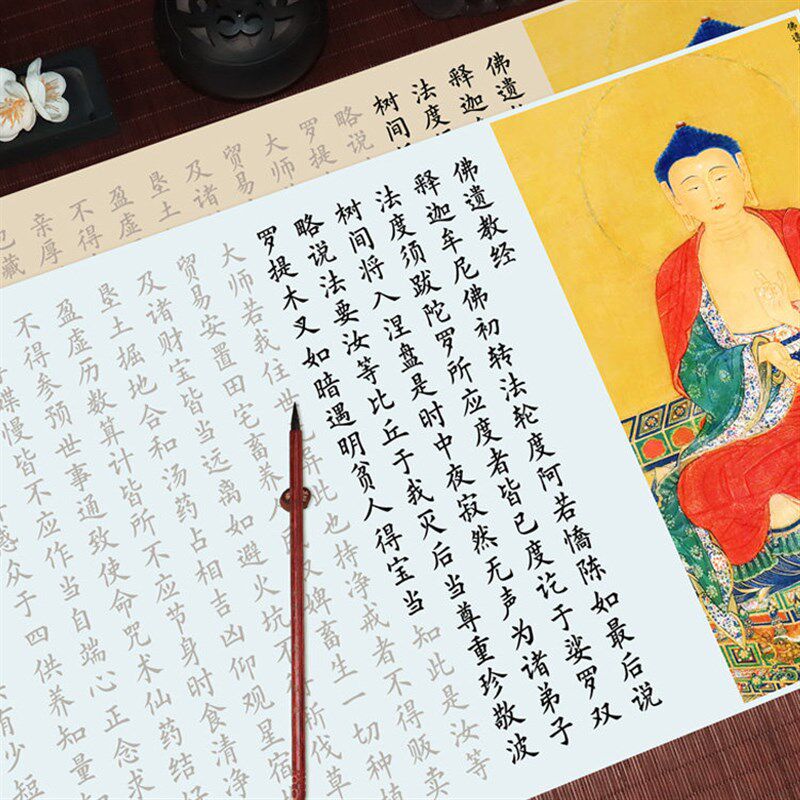 佛遗教经
释迦牟尼佛初转法轮度阿若憍陈如最后说
法度须跋陀罗所应度者皆已度讫于娑罗双
树间将入涅盘是时中夜寂然无声为诸弟子
略说法要汝等比丘于我灭后当尊重珍敬波
罗提木叉如暗遇明贫人得宝当知此是汝等
大师若我住世异此也持净戒者不得贩卖
贸易安置田宅畜养人民奴婢畜生一切种植
及诸财宝皆当远离如避火坑不得斩伐草
垦土掘地合和汤药占相吉凶仰观星宿
盈虚历数算计皆所不应节身时食清净
不得参预世事通致使命咒术仙药结好
媟慢皆不应作当自端心正念求
惑众于四供养知量
有少短
佛遗
释迦
法度
树间
略说
罗提
大师
贸易
及诸
垦土
盈虚
不得
亲厚
藏
佛遗